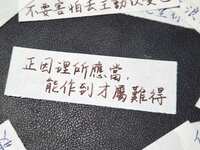 不要害怕去主動改變
正因理所應當,
能作到才屬難得